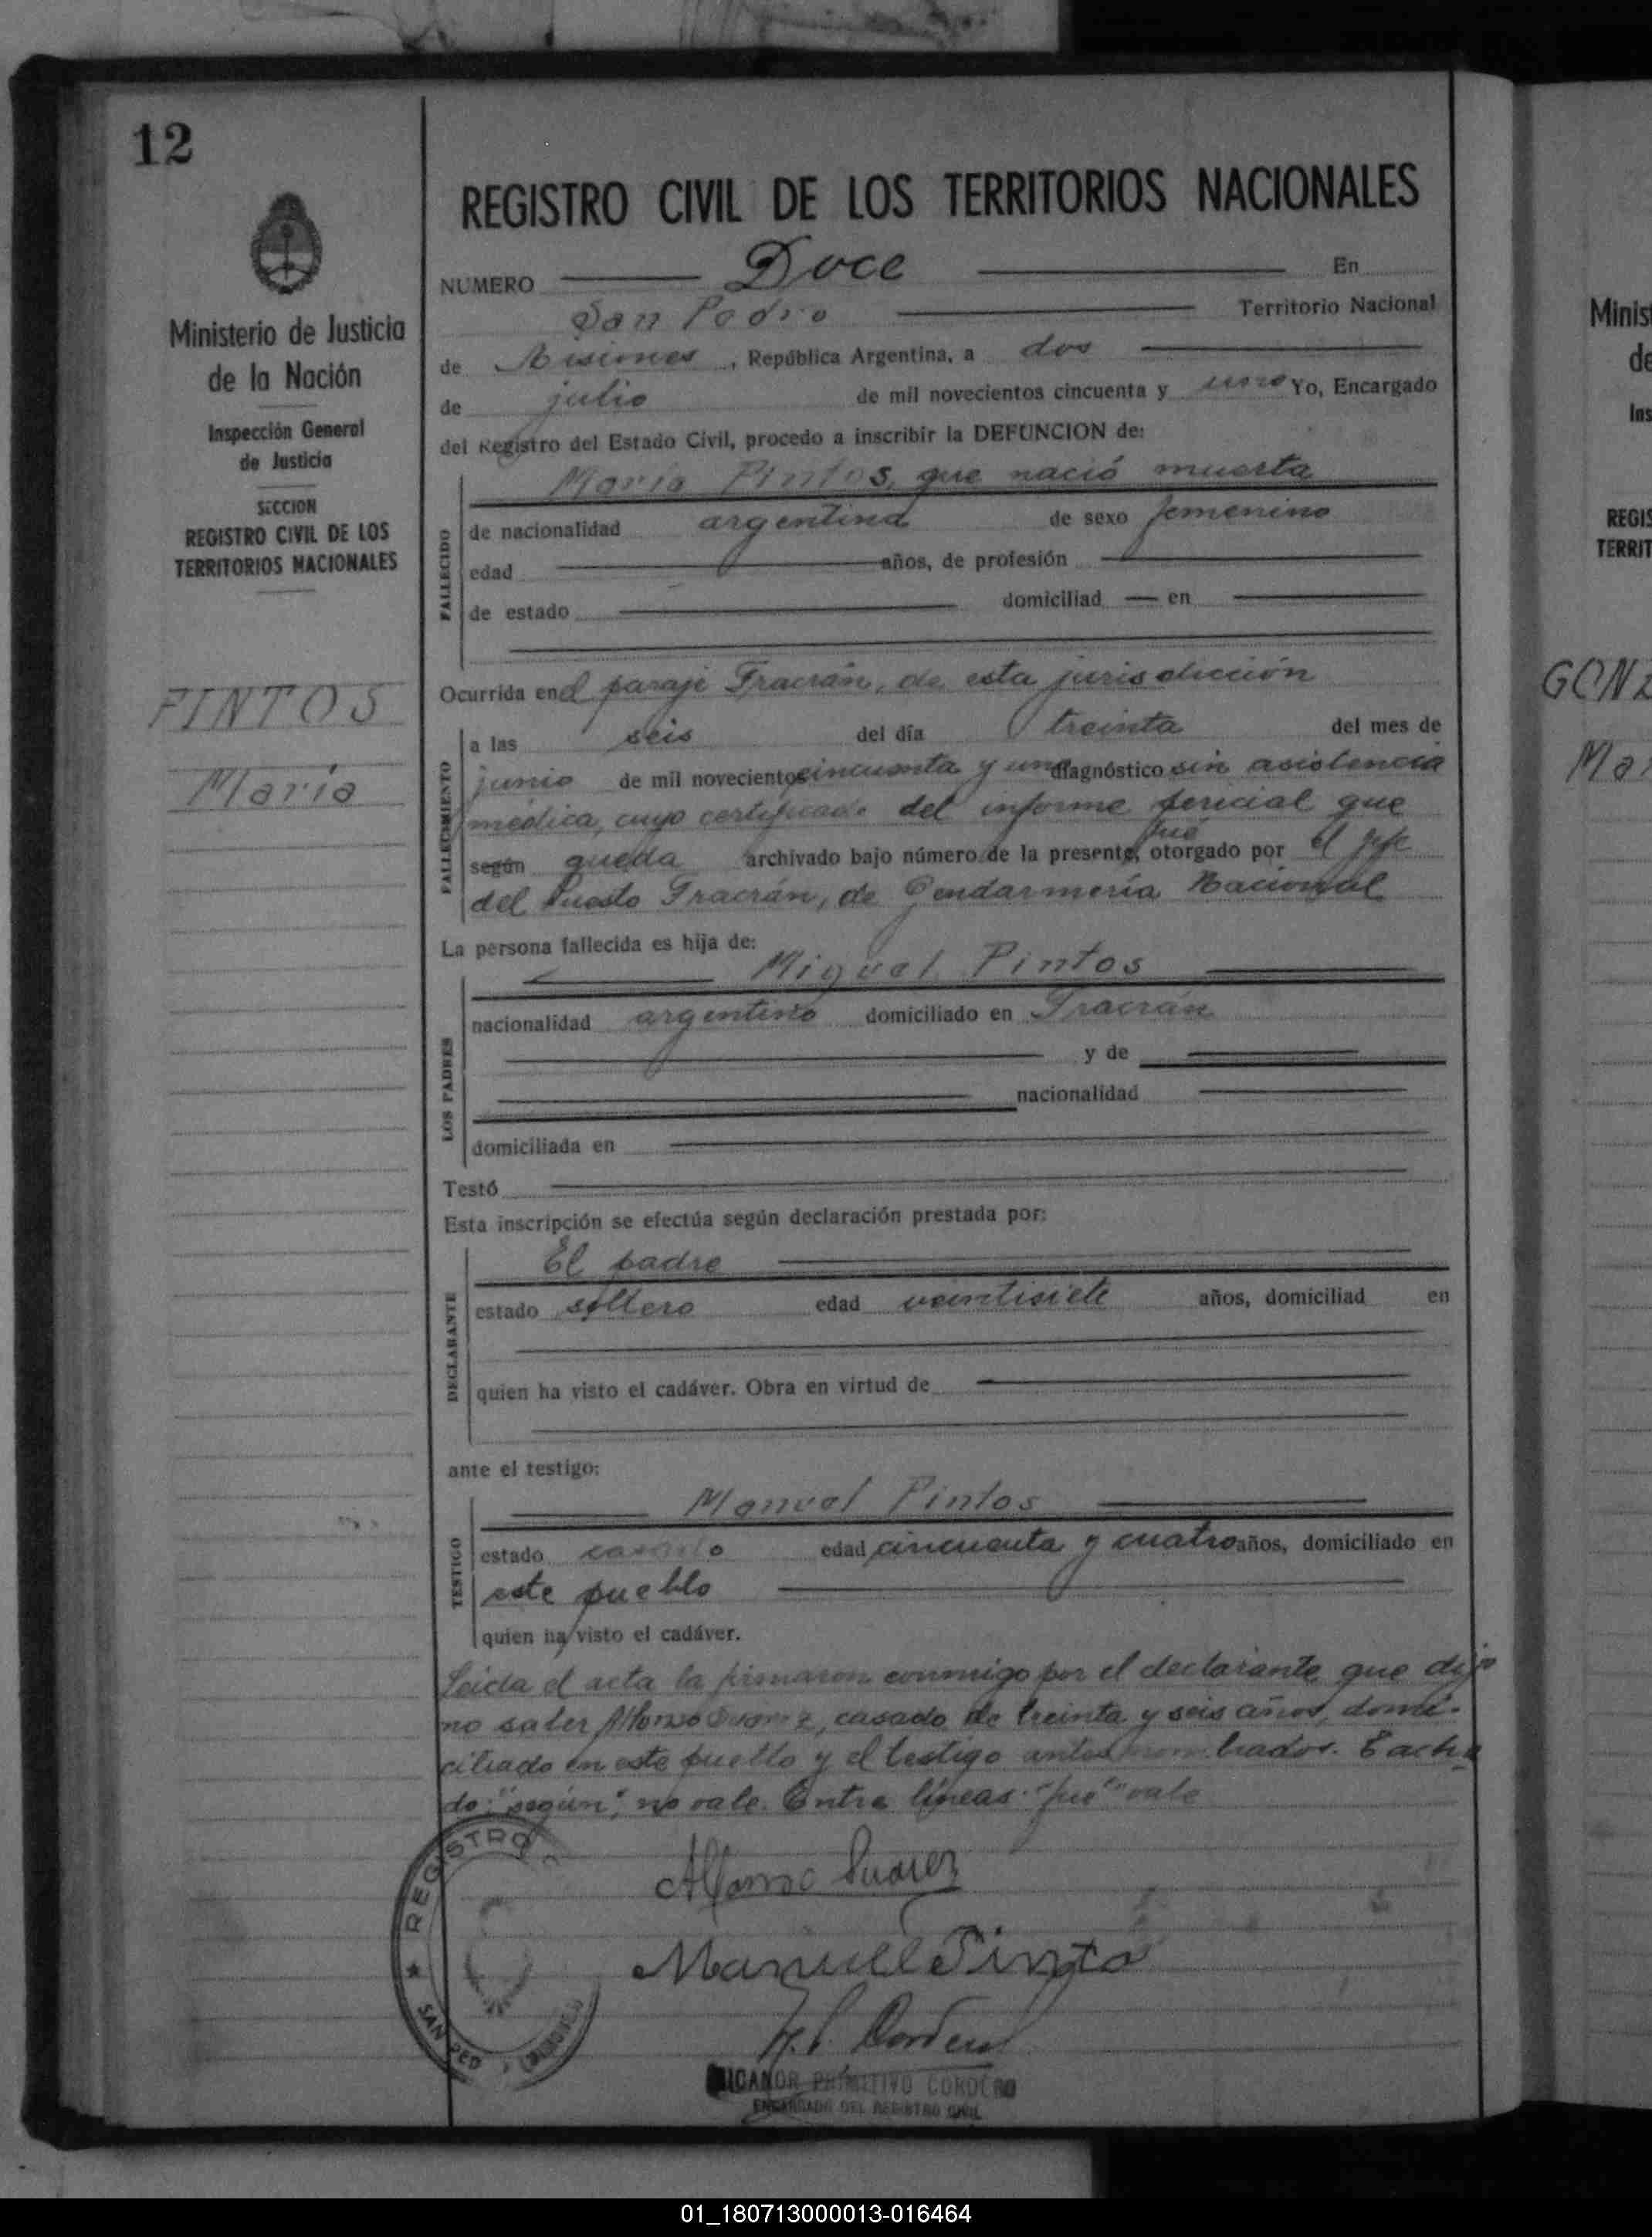 12
Ministerio de Justicia
de la Nación
Inspección General
de Justicia
SECCION
REGISTRO CIVIL DE LOS
TERRITORIOS NACIONALES
PINTOS
María
REGISTRO CIVIL DE LOS TERRITORIOS NACIONALES
NUMERO Doce En
San Pedro Territorio Nacional
de Misiones, República Argentina, a dos
de julio de mil novecientos cincuenta y uno Yo, Encargado
del Registro del Estado Civil, procedo a inscribir la DEFUNCION de:
María Pintos, que nació muerta
FALLECIDO
de nacionalidad argentina de sexo femenino
edad años, de profesión
de estado domiciliad en
Ocurrida en el paraje Fracrán, de esta jurisdicción
FALLECIMIENTO
a las seis del día treinta del mes de
junio de mil novecientos cincuenta y uno diagnóstico sin asistencia
médica, cuyo certificado del informe pericial que
fué
según queda archivado bajo número de la presente, otorgado por el jefe
del Puesto Fracrán, de Gendarmería Nacional
La persona fallecida es hija de:
Miguel Pintos
LOS PADRES
nacionalidad argentino domiciliado en Fracrán
y de
nacionalidad
domiciliada en
Testó
Esta inscripción se efectúa según declaración prestada por:
El padre
DECLARANTE
estado soltero edad veintisiete años, domiciliad en
quien ha visto el cadáver. Obra en virtud de
ante el testigo:
Manuel Pintos
TESTIGO
estado casado edad cincuenta y cuatro años, domiciliado en
este pueblo
quien ha visto el cadáver.
Leída el acta la firmaron conmigo por el declarante que dijo
no saber Alfonso Suarez, casado de treinta y seis años, domi-
ciliado en este pueblo y el testigo antes nombrados. Tacha
do: "según", no vale. Entre líneas: "fué" vale
Alfonso Suarez
Manuel Pinto
N.P. Cordero
REGISTRO
SAN PED
NICANOR PRIMITIVO CORDERO
ENCARGADO DEL REGISTRO CIVIL
Minis
de
Ins
REGIS
TERRIT
GONZ
Mar
01_180713000013-016464